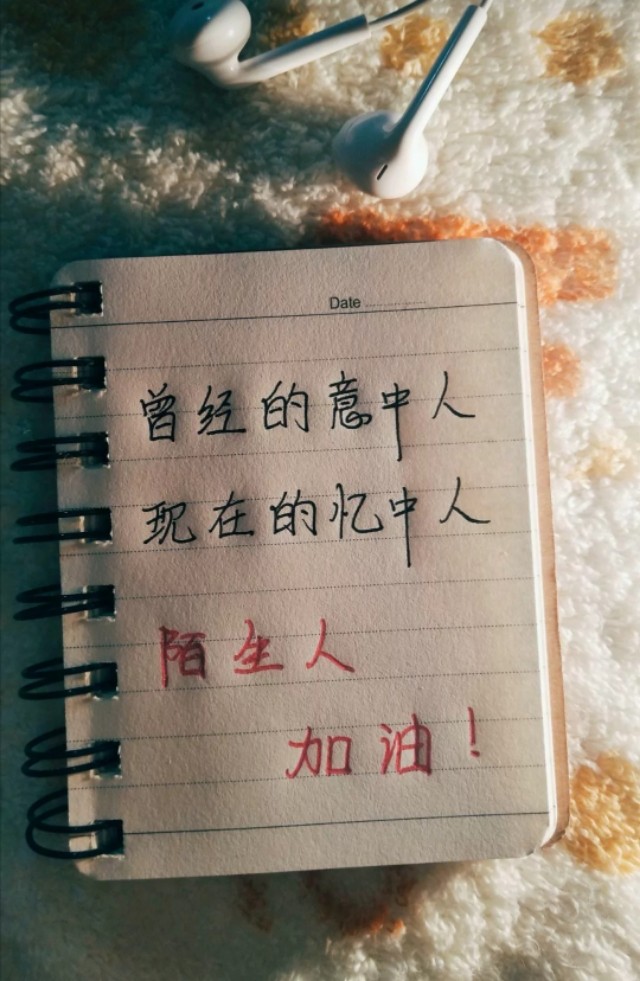 Date
曾经的意中人
现在的忆中人
陌生人
加油！